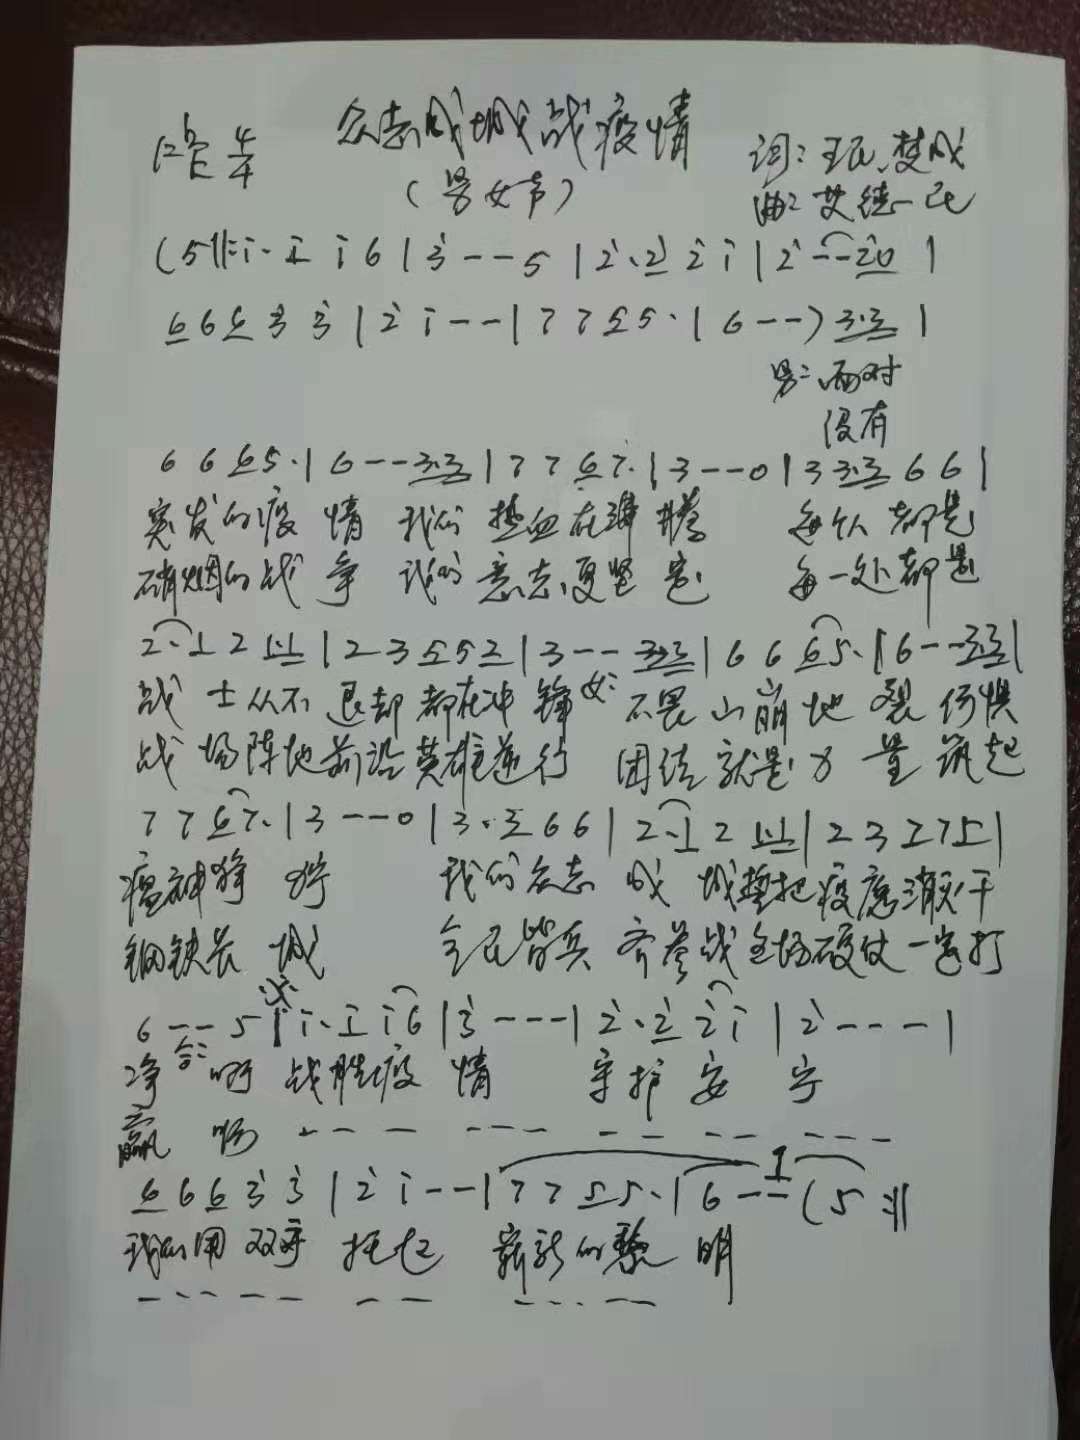 1=♭E 4/4 众志成城战疫情 词:王民、楚成
(男女声) 曲:艾德一民
(5‖:i·i i 6|3--5|2·2 2 i|2--20|
6 6 6 3 3|2 i--|7 7 5 5·|6--)3·3|
男:面对
没有
6 6 6 5·|6--3·3|7 7 6 7·|3--0|3 3·3 6 6|
突发的疫情 我们热血在沸腾 每个人都是
硝烟的战争 我们意志更坚 每一处都是
2·1 2 1·1|2 3 5 5 2|3--3·3|6 6 6 5·|6--3·3|
战士从不退却都在冲锋 女:不畏山崩地裂 何惧
战场阵地前沿英雄逆行 团结就是力量 筑起
7 7 6 7·|3--0|3·3 6 6|2·1 2 1·1|2 3 2 7 5|
瘟神狰狞 我们众志成城誓把疫魔消灭干
钢铁长城 全民皆兵齐参战全场硬仗一定打
6--5|i·i i 6|3---|2·2 2 i|2---|
净 合:啊 战胜疫情 守护安宁
赢 啊
6 6 6 3 3|2 i--|7 7 5 5·|6--(5:‖
我们用双手 托起 崭新的黎明